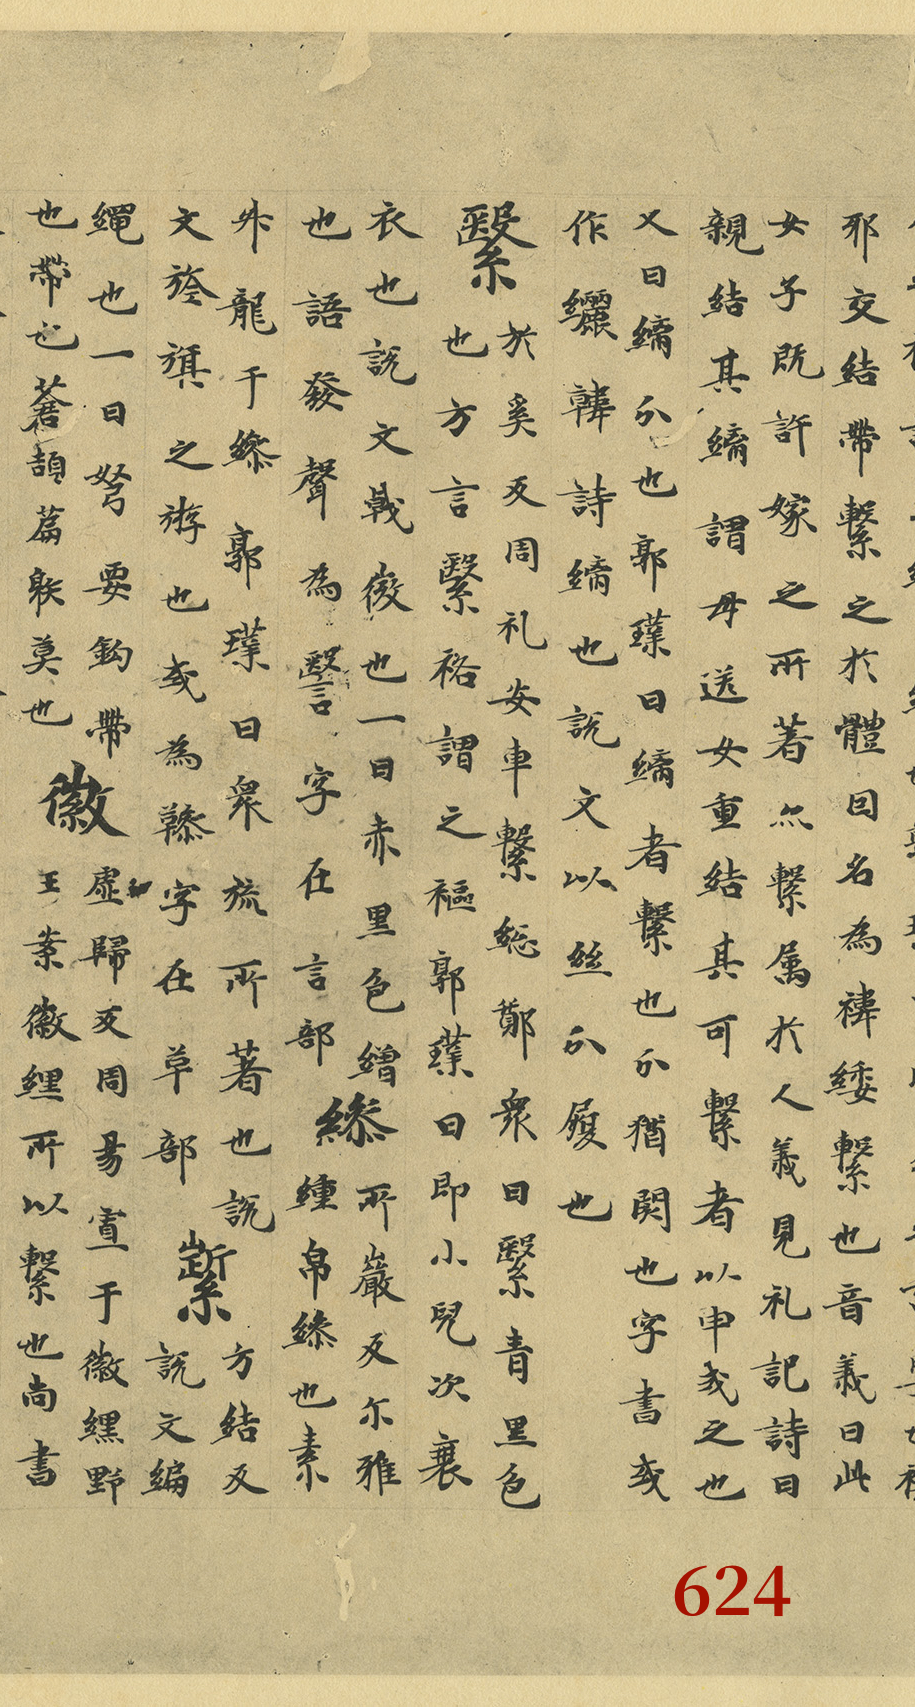 邪交結帶繫之於體因名為褘緌繫也音義曰此
女子既許嫁之所著示繫属於人義見礼記詩曰
親結其縭謂母送女重結其可繫者以申戒之也
又曰縭介也郭璞曰縭者繫也介猶閡也字書或
作纚韡詩縭也說文以絲介履也
繄
於奚反周礼安車繫緫鄭衆曰繄青黒色
也方言繄袼謂之樞郭璞曰即小兒次裹
衣也說文戟㣲也一曰赤黒色繒
也語發聲為䃜字在言部
縿
所巖反尓雅
纁帛縿也素
升龍于縿郭璞曰衆旒所著也說
文旌旗之游也或為䅟字在草部
䋢
方結反
說文編
繩也一曰弩要鉤帶
也帶也蒼頡篇躾莫也
徽
虚歸反周易寘于徽纆野
王案徽纆所以繫也尚書
624